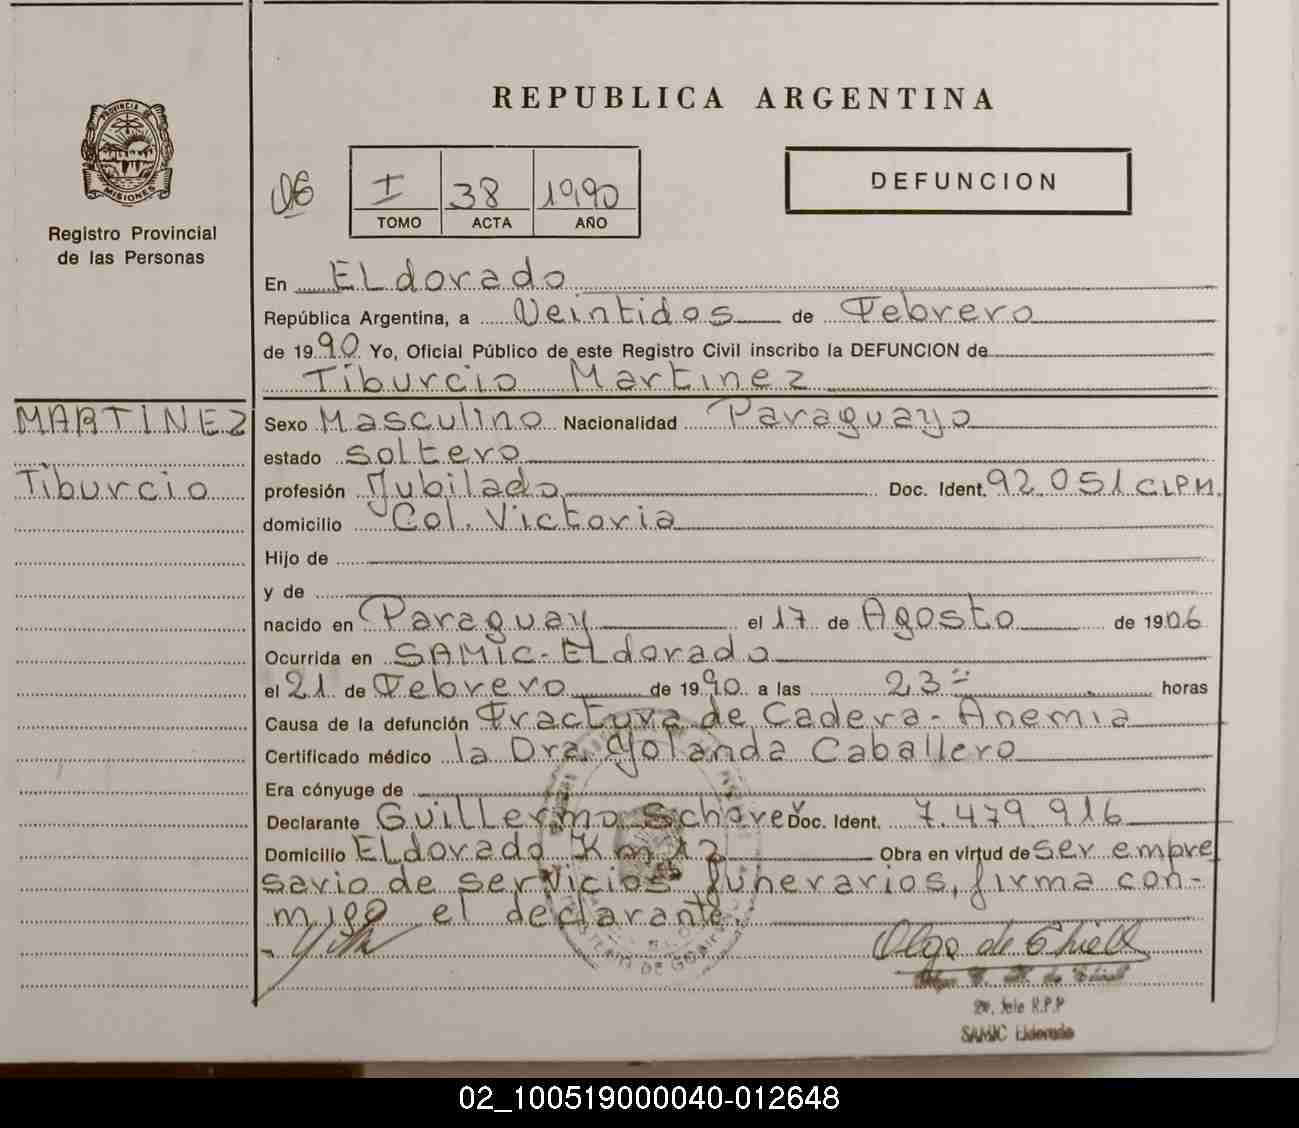 REPUBLICA ARGENTINA
PROVINCIA DE
MISIONES
Registro Provincial
de las Personas
I 38 1990
TOMO ACTA AÑO
DEFUNCION
En ELdorado
República Argentina, a Veintidos de Febrero
de 1990 Yo, Oficial Público de este Registro Civil inscribo la DEFUNCION de
Tiburcio Martinez
MARTINEZ
Tiburcio
Sexo Masculino Nacionalidad Paraguayo
estado soltero
profesión Jubilado Doc. Ident. 92.051 C.I.P.M.
domicilio Col. Victoria
Hijo de
y de
nacido en Paraguay el 17 de Agosto de 1906
Ocurrida en SAMIC-ELdorado
el 21 de Febrero de 1990 a las 23= horas
Causa de la defunción Fractura de Cadera - Anemia
Certificado médico la Dra. Yolanda Caballero
Era cónyuge de
Declarante Guillermo Doc. Ident. 7.479.916
Domicilio ELdorado Km 12 Obra en virtud de ser empre
sario de servicios funerarios, firma con-
migo el declarante.
Olga de
SAMIC Eldorado
02_100519000040-012648